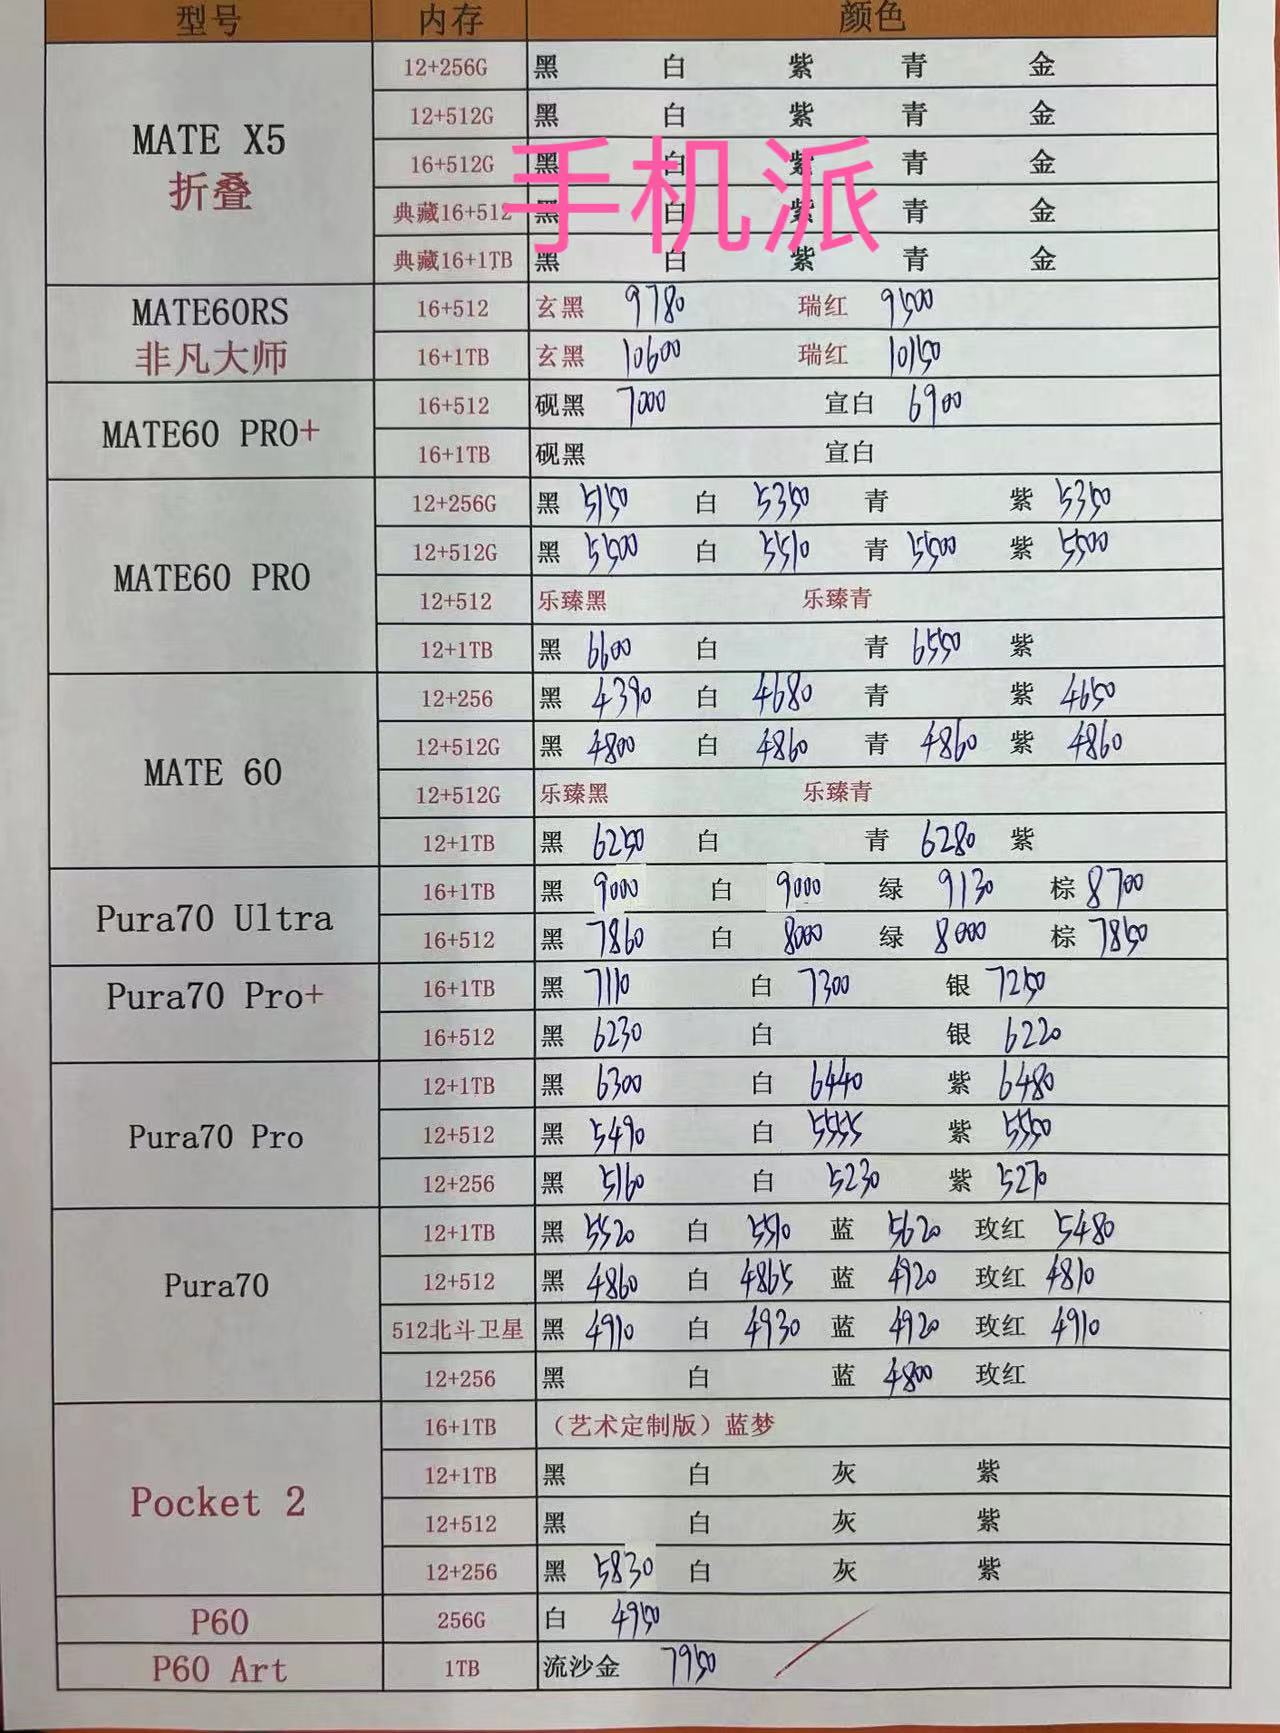 型号 内存 颜色
MATE X5 折叠 12+256G 黑 白 紫 青 金
12+512G 黑 白 紫 青 金
16+512G 黑 白 紫 青 金
手机派
典藏16+512 黑 白 紫 青 金
典藏16+1TB 黑 白 紫 青 金
MATE60RS 非凡大师 16+512 玄黑 9780 瑞红 9500
16+1TB 玄黑 10600 瑞红 10150
MATE60 PRO+ 16+512 砚黑 7000 宣白 6900
16+1TB 砚黑 宣白
MATE60 PRO 12+256G 黑 5150 白 5350 青 紫 5350
12+512G 黑 5500 白 5510 青 5500 紫 5500
12+512 乐臻黑 乐臻青
12+1TB 黑 6600 白 青 6550 紫
MATE 60 12+256 黑 4390 白 4680 青 紫 4650
12+512G 黑 4800 白 4860 青 4860 紫 4860
12+512G 乐臻黑 乐臻青
12+1TB 黑 6250 白 青 6280 紫
Pura70 Ultra 16+1TB 黑 9000 白 9000 绿 9130 棕 8700
16+512 黑 7860 白 8000 绿 8000 棕 7850
Pura70 Pro+ 16+1TB 黑 7110 白 7300 银 7250
16+512 黑 6230 白 银 6220
Pura70 Pro 12+1TB 黑 6300 白 6440 紫 6480
12+512 黑 5490 白 5555 紫 5550
12+256 黑 5160 白 5230 紫 5270
Pura70 12+1TB 黑 5520 白 5510 蓝 5620 玫红 5480
12+512 黑 4860 白 4865 蓝 4920 玫红 4810
512北斗卫星 黑 4910 白 4930 蓝 4920 玫红 4910
12+256 黑 白 蓝 4800 玫红
Pocket 2 16+1TB （艺术定制版）蓝梦
12+1TB 黑 白 灰 紫
12+512 黑 白 灰 紫
12+256 黑 5830 白 灰 紫
P60 256G 白 4950
P60 Art 1TB 流沙金 7950